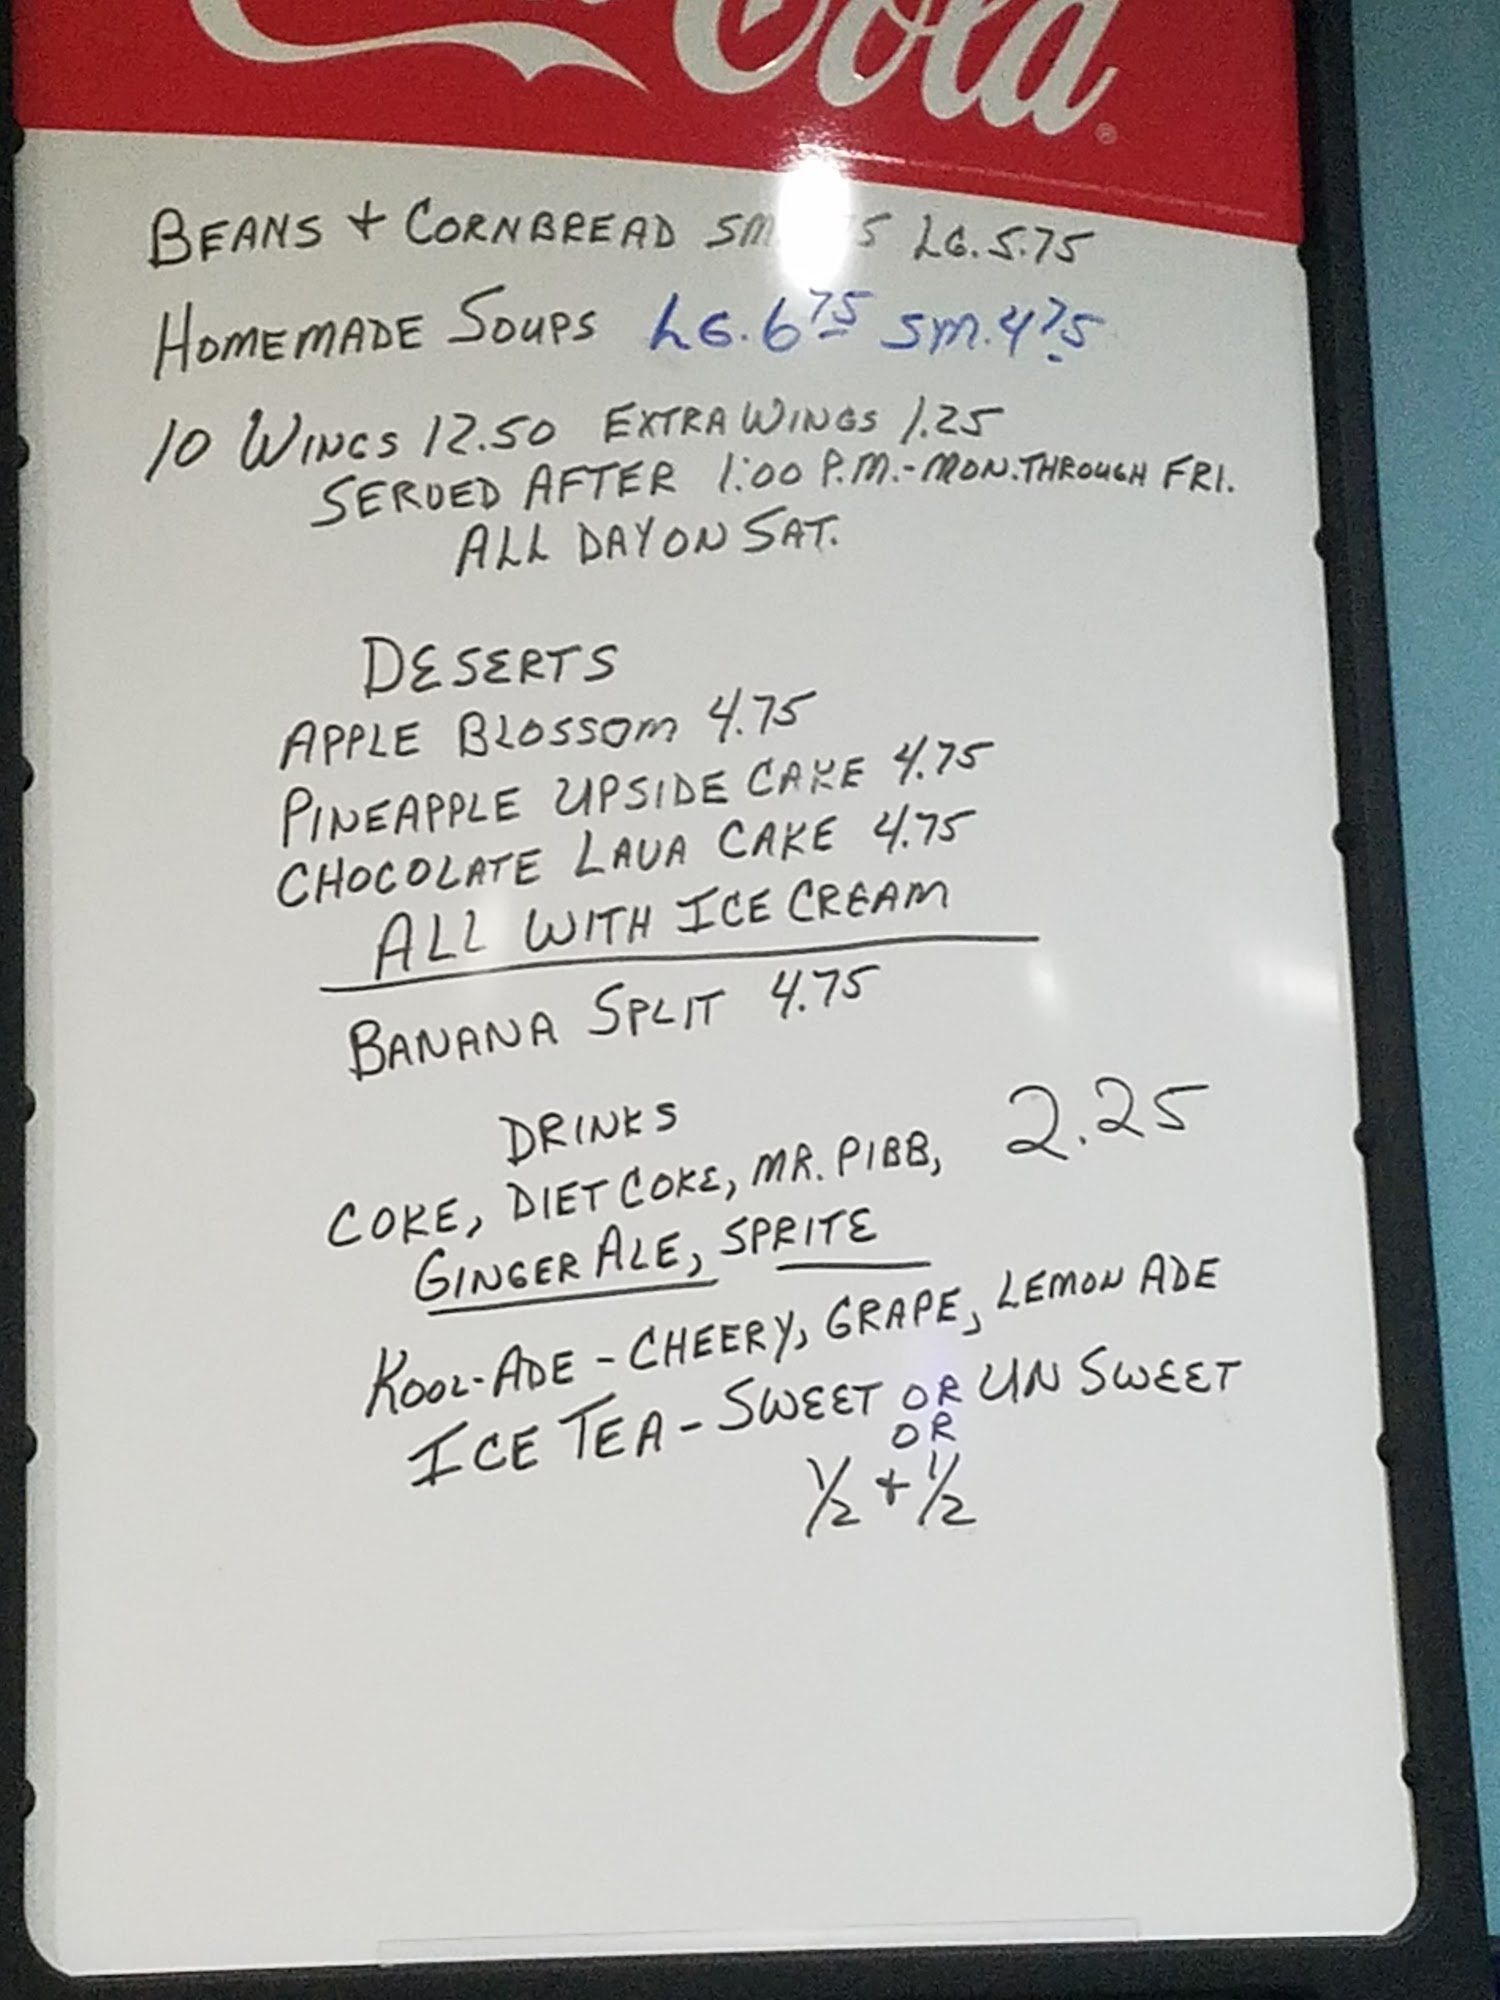 Cold®
BEANS + CORNBREAD SM 5 LG. 5.75
HOMEMADE SOUPS LG. 6 75 SM. 4 75
10 WINGS 12.50 EXTRA WINGS 1.25
SERVED AFTER 1:00 P.M.-MON. THROUGH FRI.
ALL DAY ON SAT.
DESERTS
APPLE BLOSSOM 4.75
PINEAPPLE UPSIDE CAKE 4.75
CHOCOLATE LAVA CAKE 4.75
ALL WITH ICE CREAM
BANANA SPLIT 4.75
DRINKS
COKE, DIET COKE, MR. PIBB, 2.25
GINGER ALE, SPRITE
KOOL-ADE - CHEERY, GRAPE, LEMON ADE
ICE TEA - SWEET OR UN SWEET
OR
1/2 + 1/2